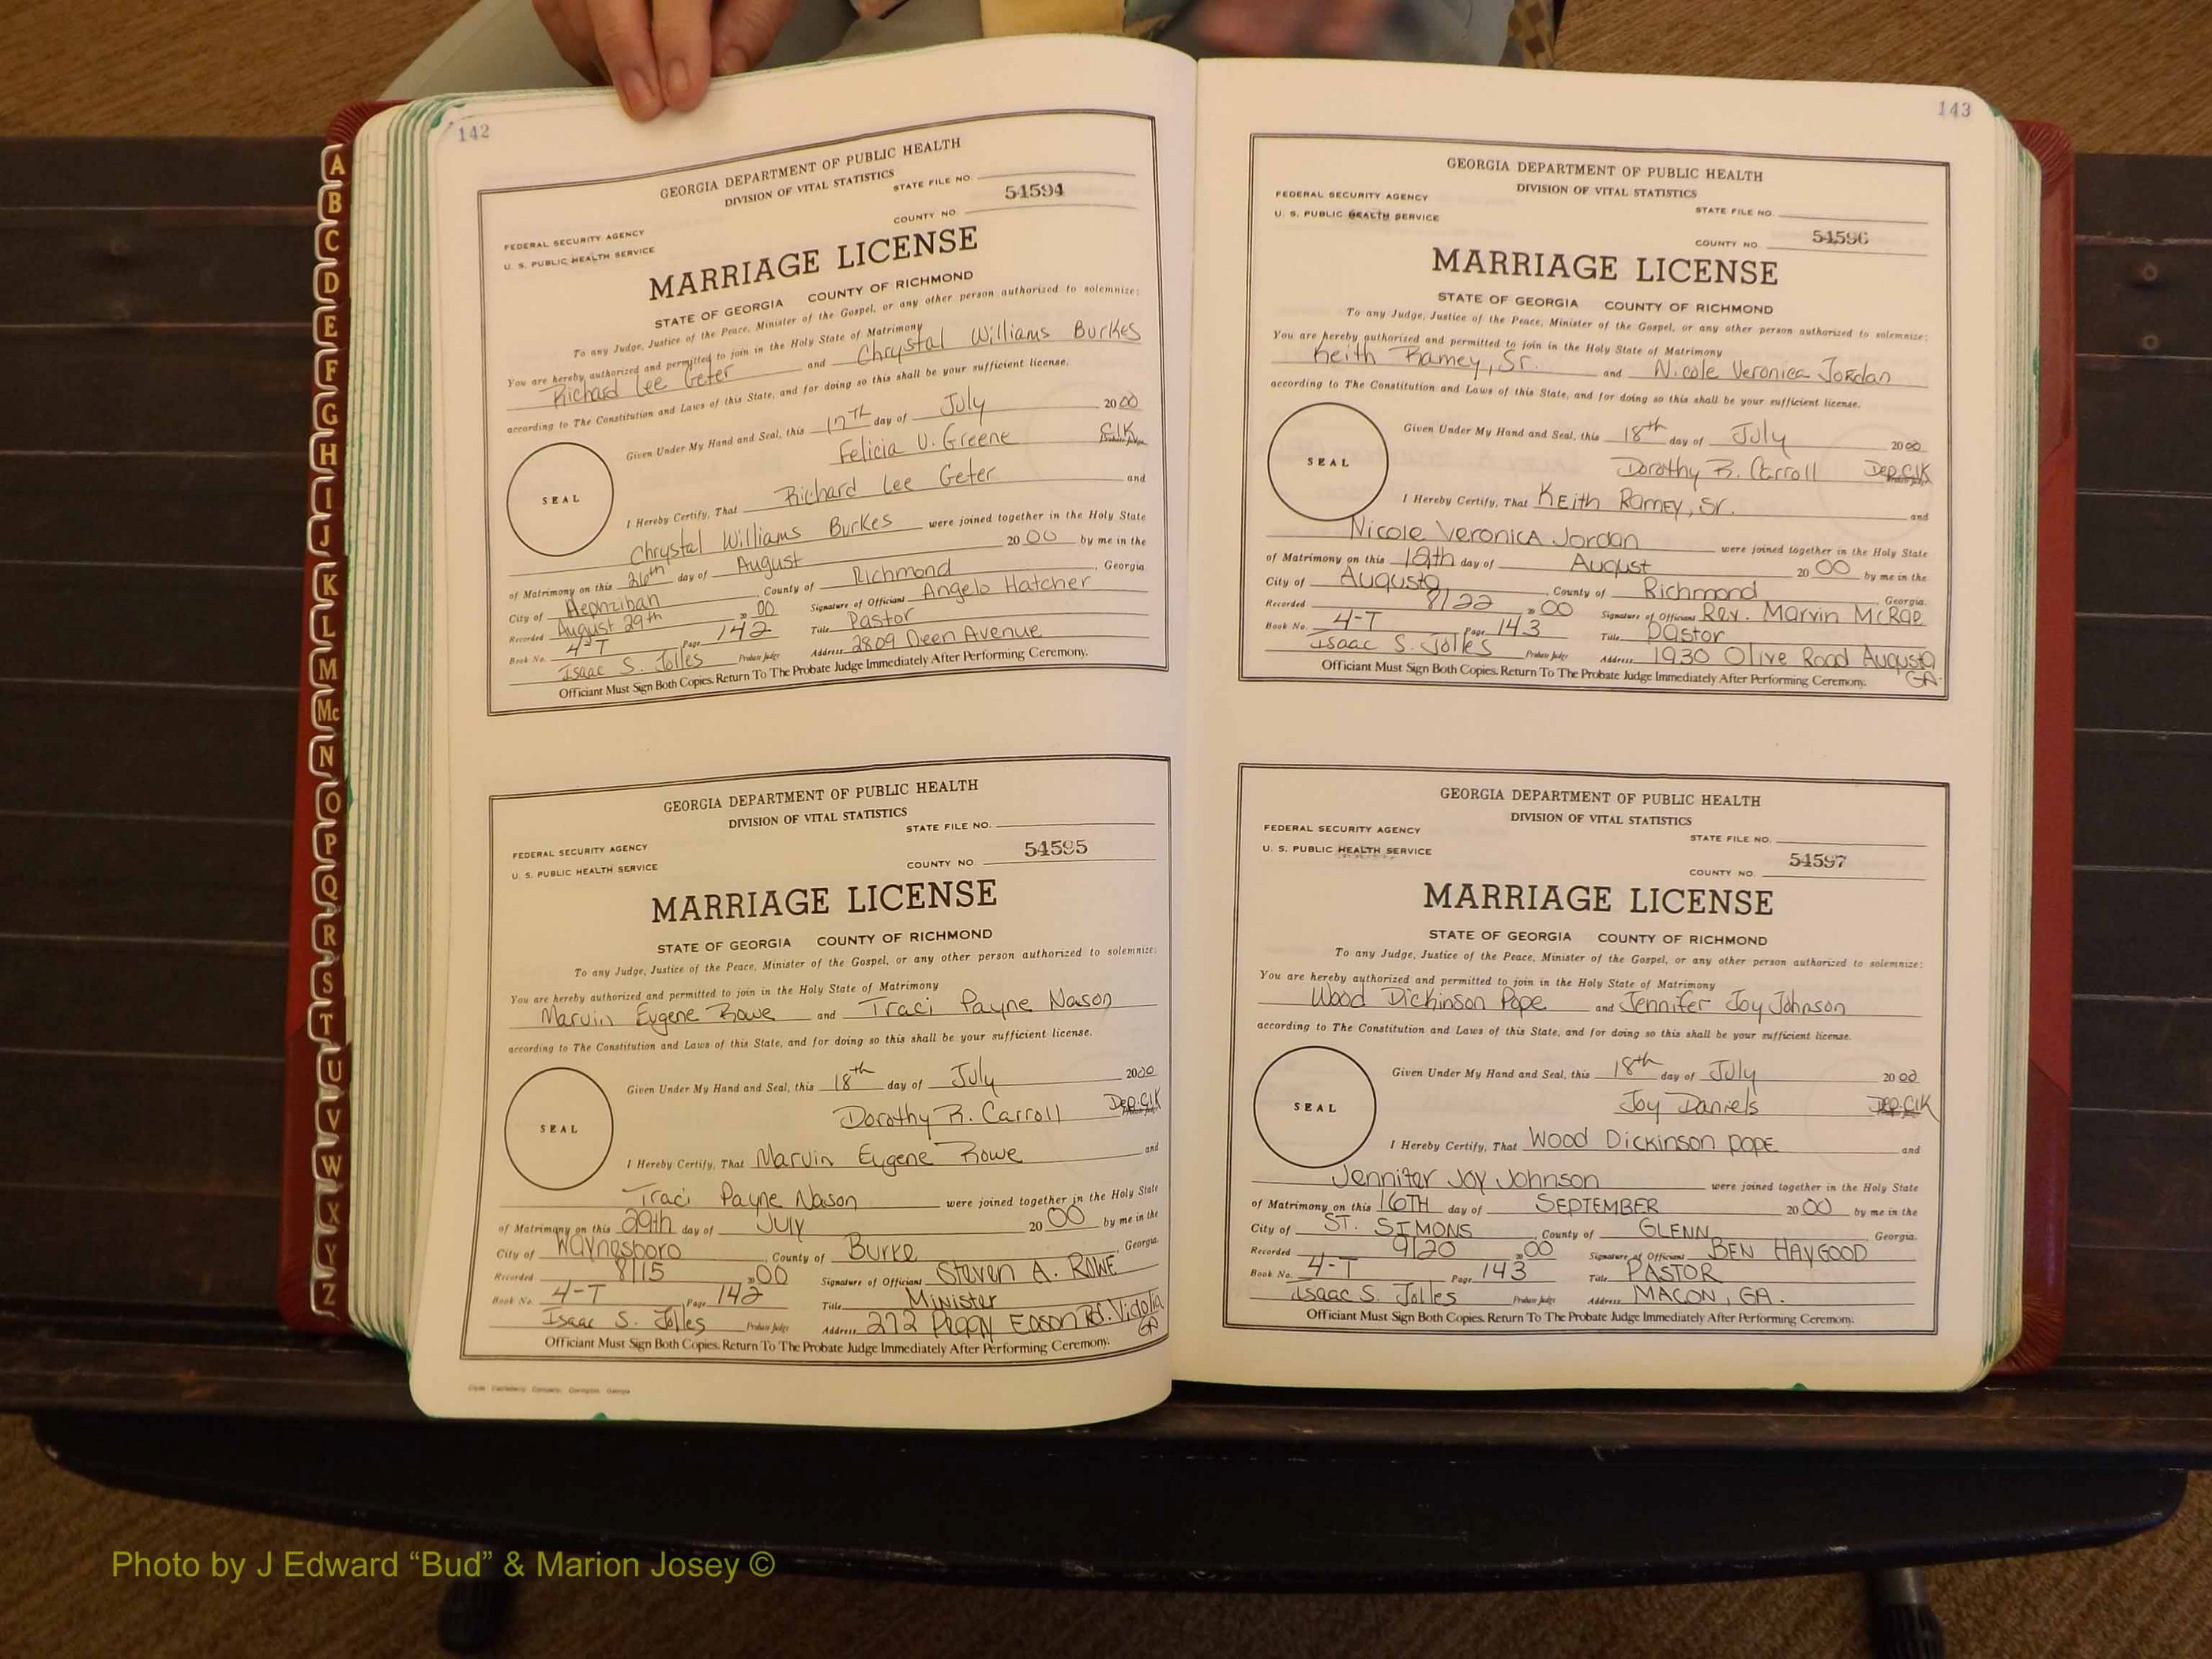 142
GEORGIA DEPARTMENT OF PUBLIC HEALTH
DIVISION OF VITAL STATISTICS
STATE FILE NO.
54594
COUNTY NO.
FEDERAL SECURITY AGENCY
U. S. PUBLIC HEALTH SERVICE
MARRIAGE LICENSE
STATE OF GEORGIA COUNTY OF RICHMOND
To any Judge, Justice of the Peace, Minister of the Gospel, or any other person authorized to solemnize:
You are hereby authorized and permitted to join in the Holy State of Matrimony
Richard Lee Geter and Chrystal Williams Burkes
according to The Constitution and Laws of this State, and for doing so this shall be your sufficient license.
Given Under My Hand and Seal, this 17TH day of July 2000
Felicia V. Greene Clk
SEAL
I Hereby Certify, That Richard Lee Geter and
Chrystal Williams Burkes were joined together in the Holy State
of Matrimony on this 26th day of August 2000 by me in the
City of Hephzibah, County of Richmond, Georgia.
Recorded August 29th 2000 Signature of Officiant Angelo Hatcher
Book No. 4-T Page 142 Title Pastor
Isaac S. Jolles Probate Judge Address 2809 Deen Avenue
Officiant Must Sign Both Copies. Return To The Probate Judge Immediately After Performing Ceremony.
GEORGIA DEPARTMENT OF PUBLIC HEALTH
DIVISION OF VITAL STATISTICS
STATE FILE NO.
FEDERAL SECURITY AGENCY
U. S. PUBLIC HEALTH SERVICE
COUNTY NO. 54595
MARRIAGE LICENSE
STATE OF GEORGIA COUNTY OF RICHMOND
To any Judge, Justice of the Peace, Minister of the Gospel, or any other person authorized to solemnize:
You are hereby authorized and permitted to join in the Holy State of Matrimony
Marvin Eugene Rowe and Traci Payne Nason
according to The Constitution and Laws of this State, and for doing so this shall be your sufficient license.
Given Under My Hand and Seal, this 18th day of July 2000
Dorothy R. Carroll Dep. Clk
SEAL
I Hereby Certify, That Marvin Eugene Rowe and
Traci Payne Nason were joined together in the Holy State
of Matrimony on this 29th day of July 2000 by me in the
City of Waynesboro, County of Burke, Georgia.
Recorded 8/15 2000 Signature of Officiant Steven A. ROWE
Book No. 4-T Page 142 Title Minister
Isaac S. Jolles Probate Judge Address 272 Peggy Eason Rd. Vidalia GA
Officiant Must Sign Both Copies. Return To The Probate Judge Immediately After Performing Ceremony.
143
GEORGIA DEPARTMENT OF PUBLIC HEALTH
DIVISION OF VITAL STATISTICS
FEDERAL SECURITY AGENCY
U. S. PUBLIC HEALTH SERVICE
STATE FILE NO.
COUNTY NO. 54596
MARRIAGE LICENSE
STATE OF GEORGIA COUNTY OF RICHMOND
To any Judge, Justice of the Peace, Minister of the Gospel, or any other person authorized to solemnize:
You are hereby authorized and permitted to join in the Holy State of Matrimony
Keith Ramey, Sr. and Nicole Veronica Jordan
according to The Constitution and Laws of this State, and for doing so this shall be your sufficient license.
Given Under My Hand and Seal, this 18th day of July 2000
Dorothy R. Carroll Dep. Clk
SEAL
I Hereby Certify, That Keith Ramey, Sr. and
Nicole Veronica Jordan were joined together in the Holy State
of Matrimony on this day of August 2000 by me in the
City of Augusta, County of Richmond, Georgia.
Recorded 8/22 2000 Signature of Officiant Rev. Marvin McRae
Book No. 4-T Page 143 Title Pastor
Isaac S. Jolles Probate Judge Address 1930 Olive Road Augusta GA.
Officiant Must Sign Both Copies. Return To The Probate Judge Immediately After Performing Ceremony.
GEORGIA DEPARTMENT OF PUBLIC HEALTH
DIVISION OF VITAL STATISTICS
FEDERAL SECURITY AGENCY
U. S. PUBLIC HEALTH SERVICE
STATE FILE NO.
COUNTY NO. 54597
MARRIAGE LICENSE
STATE OF GEORGIA COUNTY OF RICHMOND
To any Judge, Justice of the Peace, Minister of the Gospel, or any other person authorized to solemnize:
You are hereby authorized and permitted to join in the Holy State of Matrimony
Wood Dickinson Pope and Jennifer Joy Johnson
according to The Constitution and Laws of this State, and for doing so this shall be your sufficient license.
Given Under My Hand and Seal, this 18th day of July 2000
Joy Daniels Dep. Clk
SEAL
I Hereby Certify, That Wood Dickinson Pope and
Jennifer Joy Johnson were joined together in the Holy State
of Matrimony on this 16TH day of SEPTEMBER 2000 by me in the
City of ST. SIMONS, County of GLENN, Georgia.
Recorded 9/20 2000 Signature of Officiant BEN HAYGOOD
Book No. 4-T Page 143 Title PASTOR
Isaac S. Jolles Probate Judge Address MACON, GA.
Officiant Must Sign Both Copies. Return To The Probate Judge Immediately After Performing Ceremony.
A
B
C
D
E
F
G
H
I
J
K
L
M
Mc
N
O
P
Q
R
S
T
U
V
W
X
Y
Z
Photo by J Edward “Bud” & Marion Josey ©